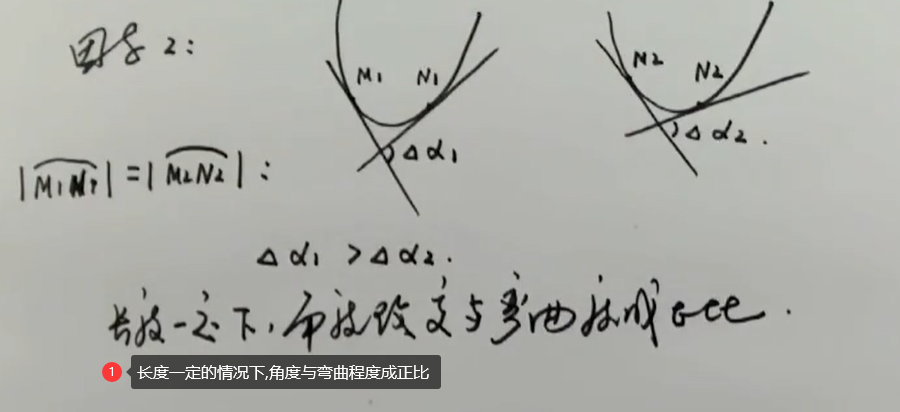 因素2:
M1 N1
M2 N2
Δα1
Δα2.
|M1N1| = |M2N2| :
Δα1 > Δα2.
长度一定下,角度改变与弯曲度成正比.
1 长度一定的情况下,角度与弯曲程度成正比